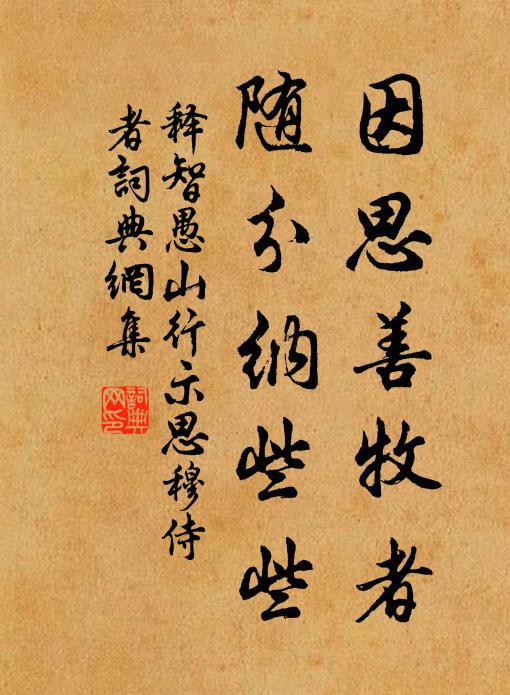 因思善牧者
随分纳些些
释智愚山行示思穆侍
者詞典網集
詞典網印